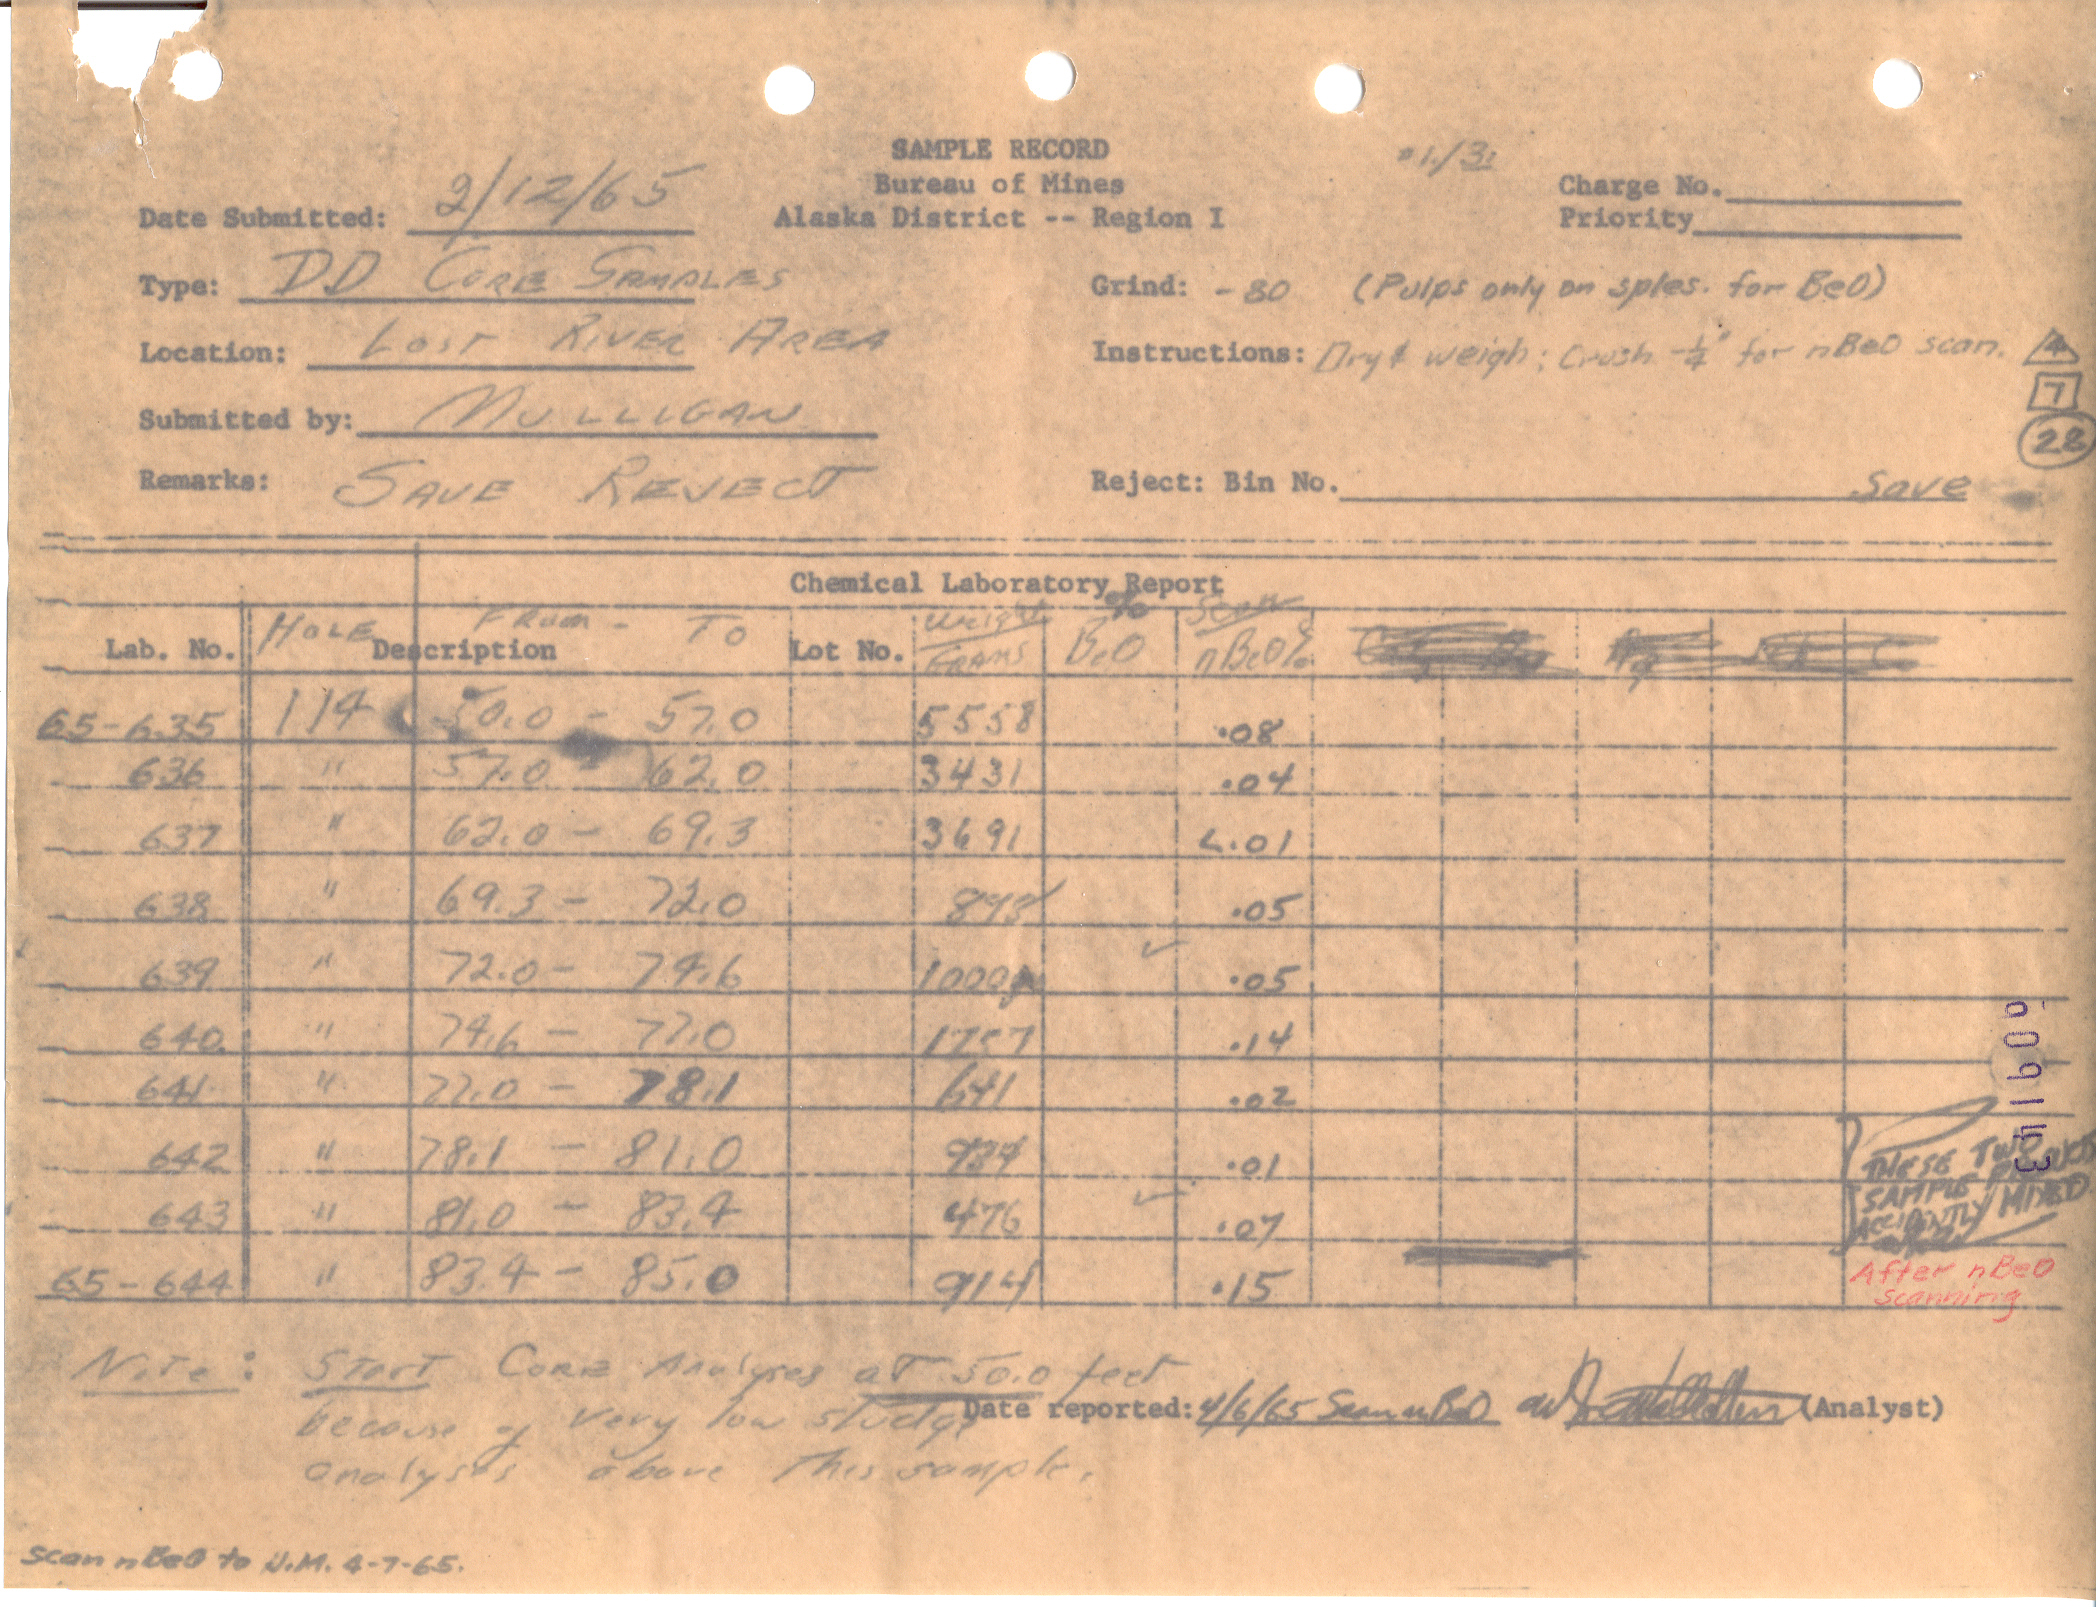 SAMPLE RECORD
Bureau of Mines
Alaska District -- Region I
Charge No.
Priority
Date Submitted: 2/12/65
Type: DD CORE SAMPLES
Grind: -80 (Pulps only on sples. for BeO)
Location: LOST RIVER AREA
Instructions: Dry & weigh; Crush -1/4" for nBeO scan.
4
7
28
Submitted by: MULLIGAN
Remarks: SAVE REJECT
Reject: Bin No. Save
Chemical Laboratory Report
Lab. No. HOLE Description FROM - TO Lot No. Weight GRAMS % BeO Scan nBeO%
65-635 114 50.0 - 57.0 5558 .08
636 " 57.0 - 62.0 3431 .04
637 " 62.0 - 69.3 3691 <.01
638 " 69.3 - 72.0 .05
639 " 72.0 - 74.6 1000 ✓ .05
640 " 74.6 - 77.0 .14
641 " 77.0 - 78.1 641 .02
642 " 78.1 - 81.0 .01
643 " 81.0 - 83.4 476 ✓ .07
65-644 " 83.4 - 85.0 914 .15
THESE TWO
SAMPLE
ACCIDENTLY MIXED
After nBeO
scanning
Note: START CORE Analyses at 50.0 feet
because of very low sludge
analyses above this sample.
Date reported: 4/6/65 Scan nBeO (Analyst)
Scan nBeO to J.M. 4-7-65.